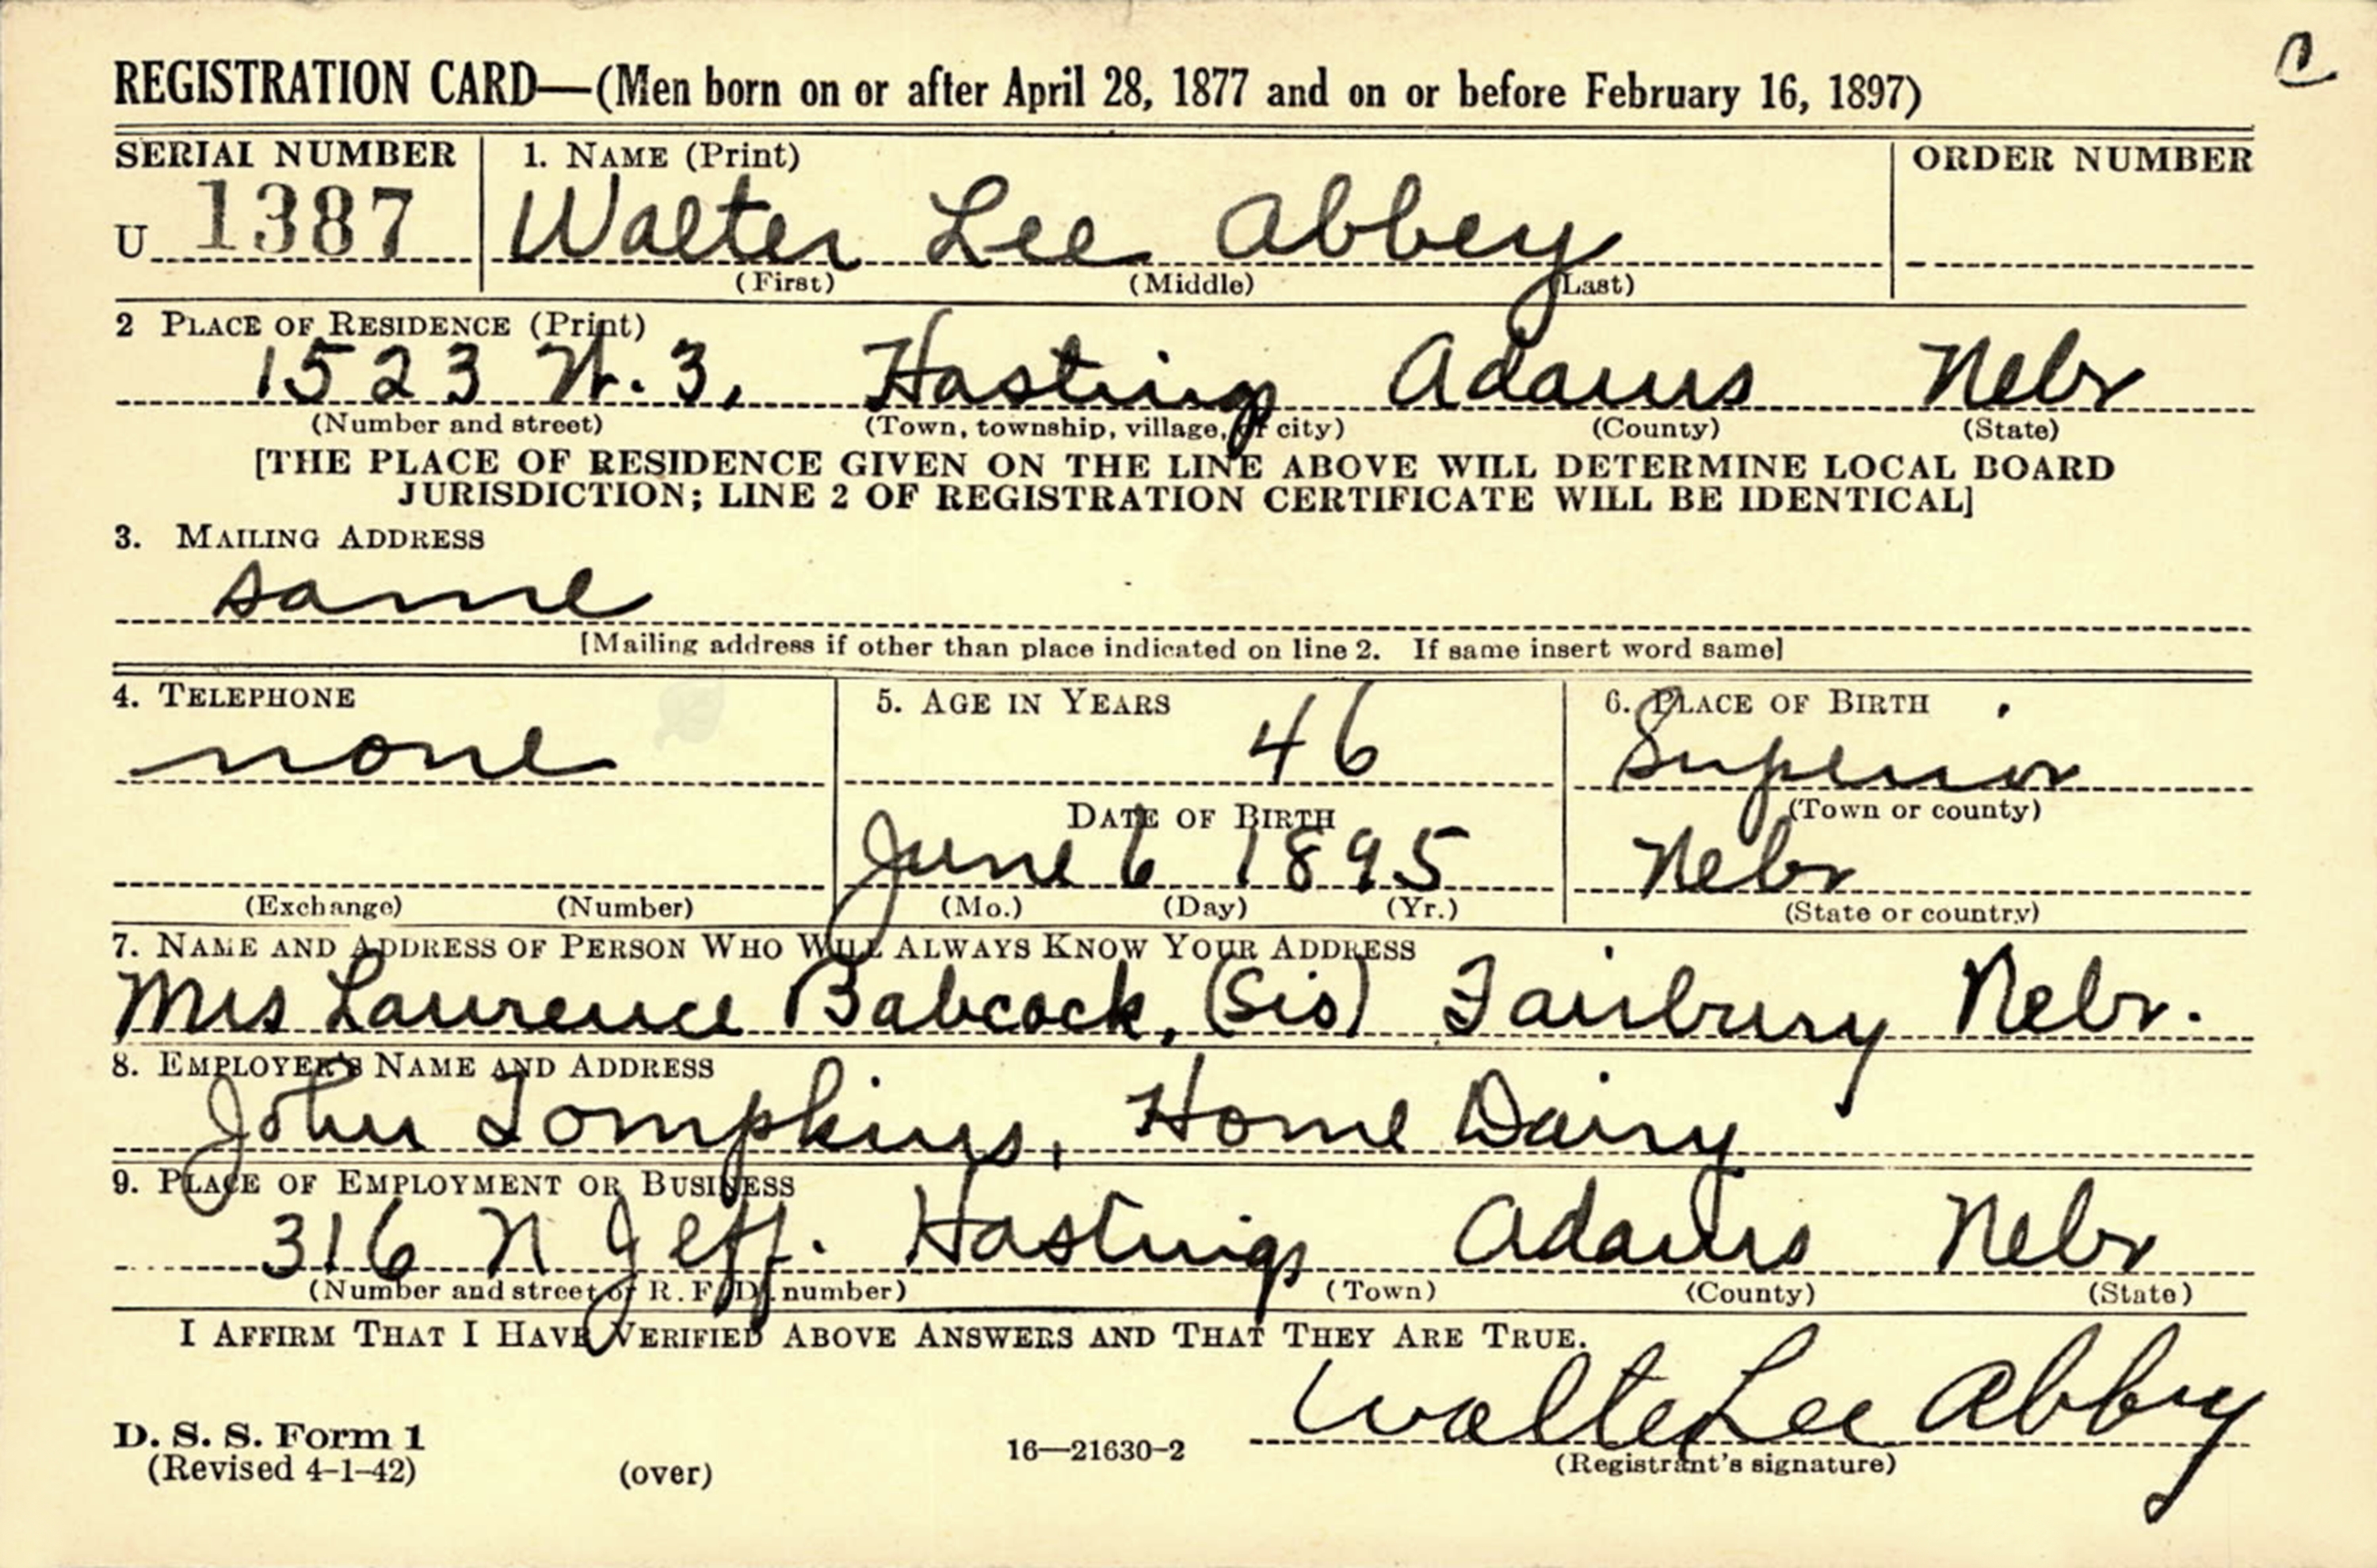 REGISTRATION CARD—(Men born on or after April 28, 1877 and on or before February 16, 1897)
SERIAL NUMBER 1. NAME (Print) ORDER NUMBER
U 1387 Walter Lee Abbey
(First) (Middle) (Last)
2 PLACE OF RESIDENCE (Print)
1523 W. 3, Hastings Adams Nebr
(Number and street) (Town, township, village, or city) (County) (State)
[THE PLACE OF RESIDENCE GIVEN ON THE LINE ABOVE WILL DETERMINE LOCAL BOARD
JURISDICTION; LINE 2 OF REGISTRATION CERTIFICATE WILL BE IDENTICAL]
3. MAILING ADDRESS
same
[Mailing address if other than place indicated on line 2. If same insert word same]
4. TELEPHONE 5. AGE IN YEARS 6. PLACE OF BIRTH
none 46 Superior
DATE OF BIRTH (Town or county)
June 6 1895 Nebr
(Exchange) (Number) (Mo.) (Day) (Yr.) (State or country)
7. NAME AND ADDRESS OF PERSON WHO WILL ALWAYS KNOW YOUR ADDRESS
Mrs Laurence Babcock, (Sis) Fairbury Nebr.
8. EMPLOYER'S NAME AND ADDRESS
John Tompkins, Home Dairy
9. PLACE OF EMPLOYMENT OR BUSINESS
316 N Jeff. Hastings Adams Nebr
(Number and street or R. F. D. number) (Town) (County) (State)
I AFFIRM THAT I HAVE VERIFIED ABOVE ANSWERS AND THAT THEY ARE TRUE.
Walter Lee Abbey
D. S. S. Form 1 16—21630-2 (Registrant's signature)
(Revised 4-1-42) (over)